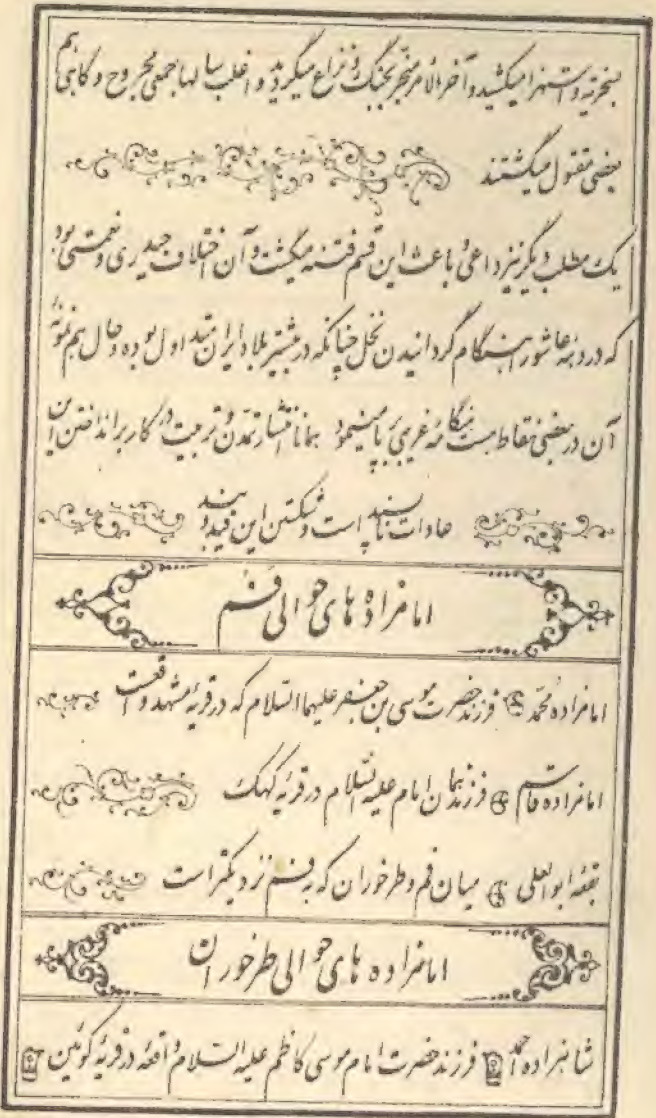 بسخریه و استهزا میکشید و آخر الامر منجر بجنگ و نزاع میگردید و اغلب سالها جمعی مجروح و گاهی هم
بعضی مقتول میگشتند
یک مطلب دیگر نیز داعی و باعث این قسم فتنه میگشت و آن اختلاف حیدری و نعمتی بود
که در روز عاشورا هنگام گردانیدن نخل چنانکه در بیشتر بلاد ایران متداول بوده و حال هم نمونهٔ
آن در بعضی نقاط هست هنگامهٔ غریبی بپا مینمود همانا انتشار تمدن و تربیت در کار برانداختن این
عادات ناپسند است و شکستن این قید و بند
امامزاده های حوالی قم
امامزاده محمد فرزند حضرت موسی بن جعفر علیهما السلام که در قریهٔ مشهد واقعست
امامزاده قاسم فرزند همان امام علیه السلام در قریهٔ کهک
بقعهٔ ابوالعلی میان قم و طرخوران که به قم نزدیکتر است
امامزاده های حوالی طرخوران
شاهزاده احمد فرزند حضرت امام موسی کاظم علیه السلام واقعه در قریهٔ کوئین